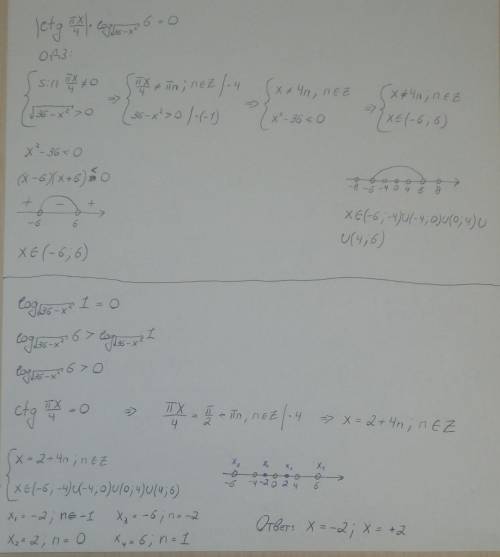 |ctg πx/4| · log_√(36-x²) 6 = 0
ОДЗ:
{ sin πx/4 ≠ 0 ; √(36-x²) > 0 ⇒ { πx/4 ≠ πn; n∈Z | ·4 ; 36-x² > 0 | ·(-1) ⇒ { x ≠ 4n, n∈Z ; x²-36 < 0 ⇒ { x ≠ 4n, n∈Z ; x∈(-6; 6)
x²-36 < 0
(x-6)(x+6) < 0
+ - +
-6 6
x∈(-6; 6)
-8 -6 -4 0 4 6 8
x∈(-6; -4)∪(-4; 0)∪(0; 4)∪
∪(4; 6)
log_√(36-x²) 1 = 0
log_√(36-x²) 6 > log_√(36-x²) 1
log_√(36-x²) 6 > 0
ctg πx/4 = 0 ⇒ πx/4 = π/2 + πn, n∈Z | ·4 ⇒ x = 2+4n, n∈Z
{ x = 2+4n; n∈Z
x∈(-6; -4)∪(-4; 0)∪(0; 4)∪(4; 6)
x₃ x₁ x₂ x₄
-6 -4 -2 0 2 4 6
x₁ = -2; n = -1 x₃ = -6; n = -2
x₂ = 2; n = 0 x₄ = 6; n = 1
Ответ: x = -2; x = +2